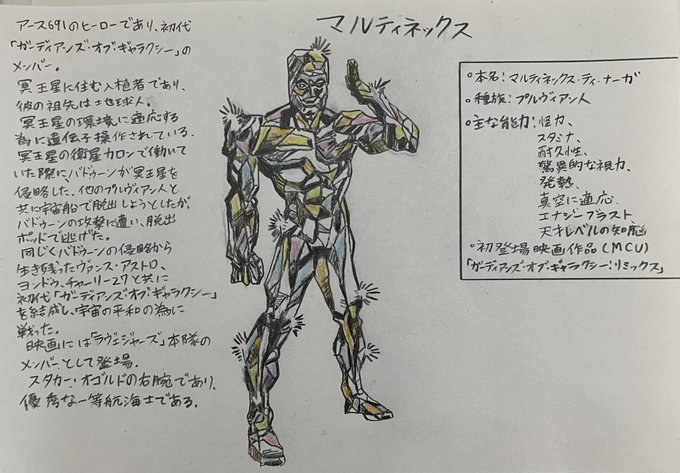 マルティネックス
アース691のヒーローであり、初代
「ガーディアンズ・オブ・ギャラクシー」の
メンバー。
冥王星に住む入植者であり、
彼の祖先は地球人。
冥王星の環境に適応する
為に遺伝子操作されている。
冥王星の衛星カロンで働いて
いた際にバドゥーンが冥王星を
侵略した。他のプルヴィアンと
共に宇宙船で脱出しようとしたが
バドゥーンの攻撃に遭い、脱出
ポッドで逃げた。
同じくバドゥーンの侵略から
生き残ったヴァンス・アストロ、
ヨンドゥ、チャーリー27と共に
初代「ガーディアンズ・オブ・ギャラクシー」
を結成し、宇宙の平和の為に
戦った。
映画には「ラヴェジャーズ」本隊の
メンバーとして登場。
スタカー・オゴルドの右腕であり、
優秀な一等航海士である。
○本名:マルティネックス・ティ・ナーガ
○種族:プルヴィアン人
○主な能力:怪力、
スタミナ、
耐久性、
驚異的な視力、
発熱、
真空に適応、
エナジーブラスト、
天才レベルの知能
○初登場映画作品(MCU)
「ガーディアンズ・オブ・ギャラクシー:リミックス」